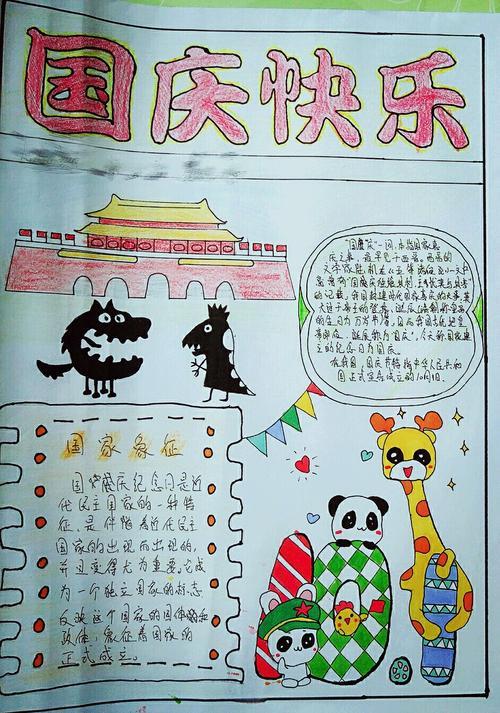 国庆快乐
"国庆"一词，本指国家喜
庆之事，最早见于西晋。西晋的
文学家陆机在五等诸侯论一文中
曾有"国庆独飨其利，主忧莫与其害
的记载。我国封建时代国家喜庆的大事，莫
大过于帝王的登基、诞辰(清朝称皇帝
的生日为万岁节)。因而我国古代把皇帝
即位、诞辰称为"国庆"。今天称国家建
立的纪念日为国庆。
在我国，国庆节特指中华人民共和
国正式宣布成立的10月1日。
国家象征
国庆纪念日是近
代民主国家的一种特
征，是伴随着近代民主
国家的出现而出现的，
并且变得尤为重要。它成
为一个独立国家的标志
反映这个国家的国体和
政体，象征着国家的
正式成立。
10